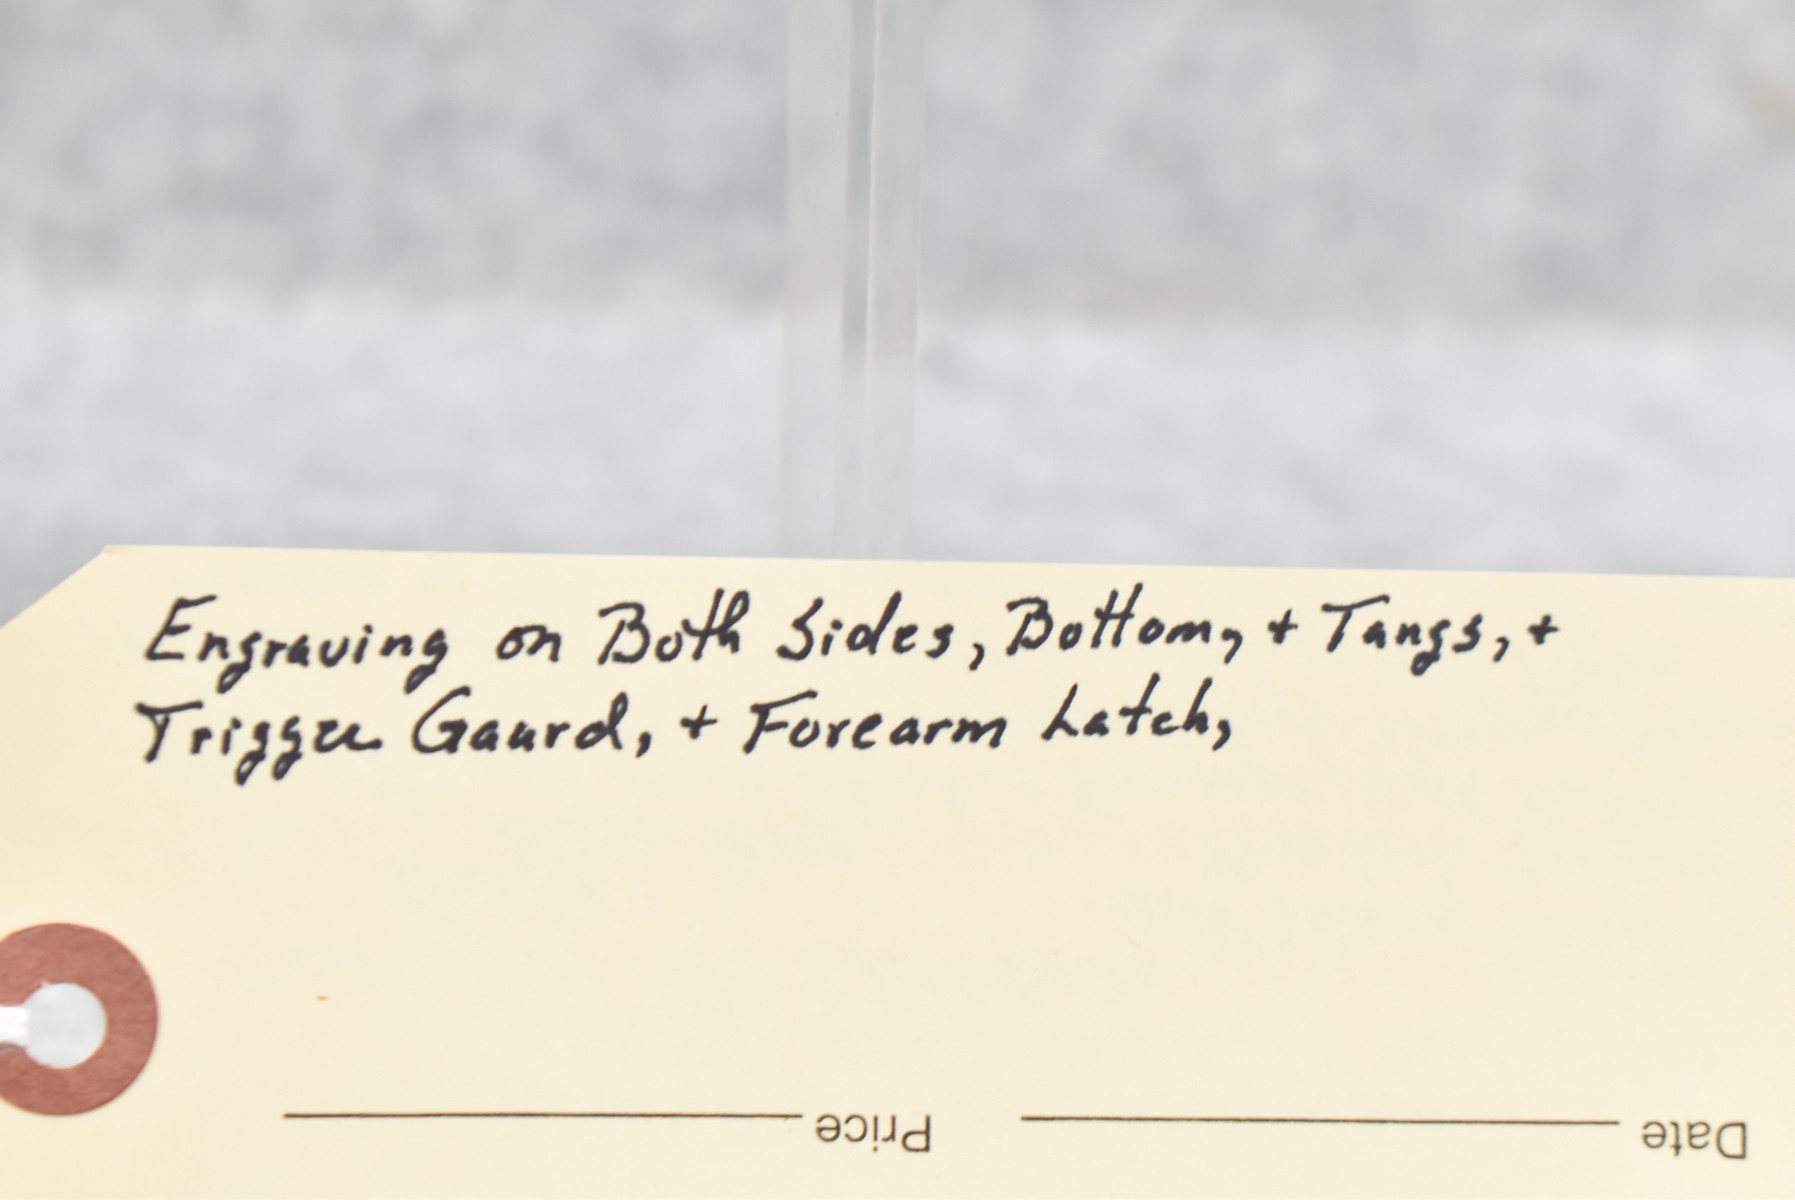 Engraving on Both Sides, Bottom, + Tangs, +
Trigger Gaurd, + Forearm Latch,
Price
Date